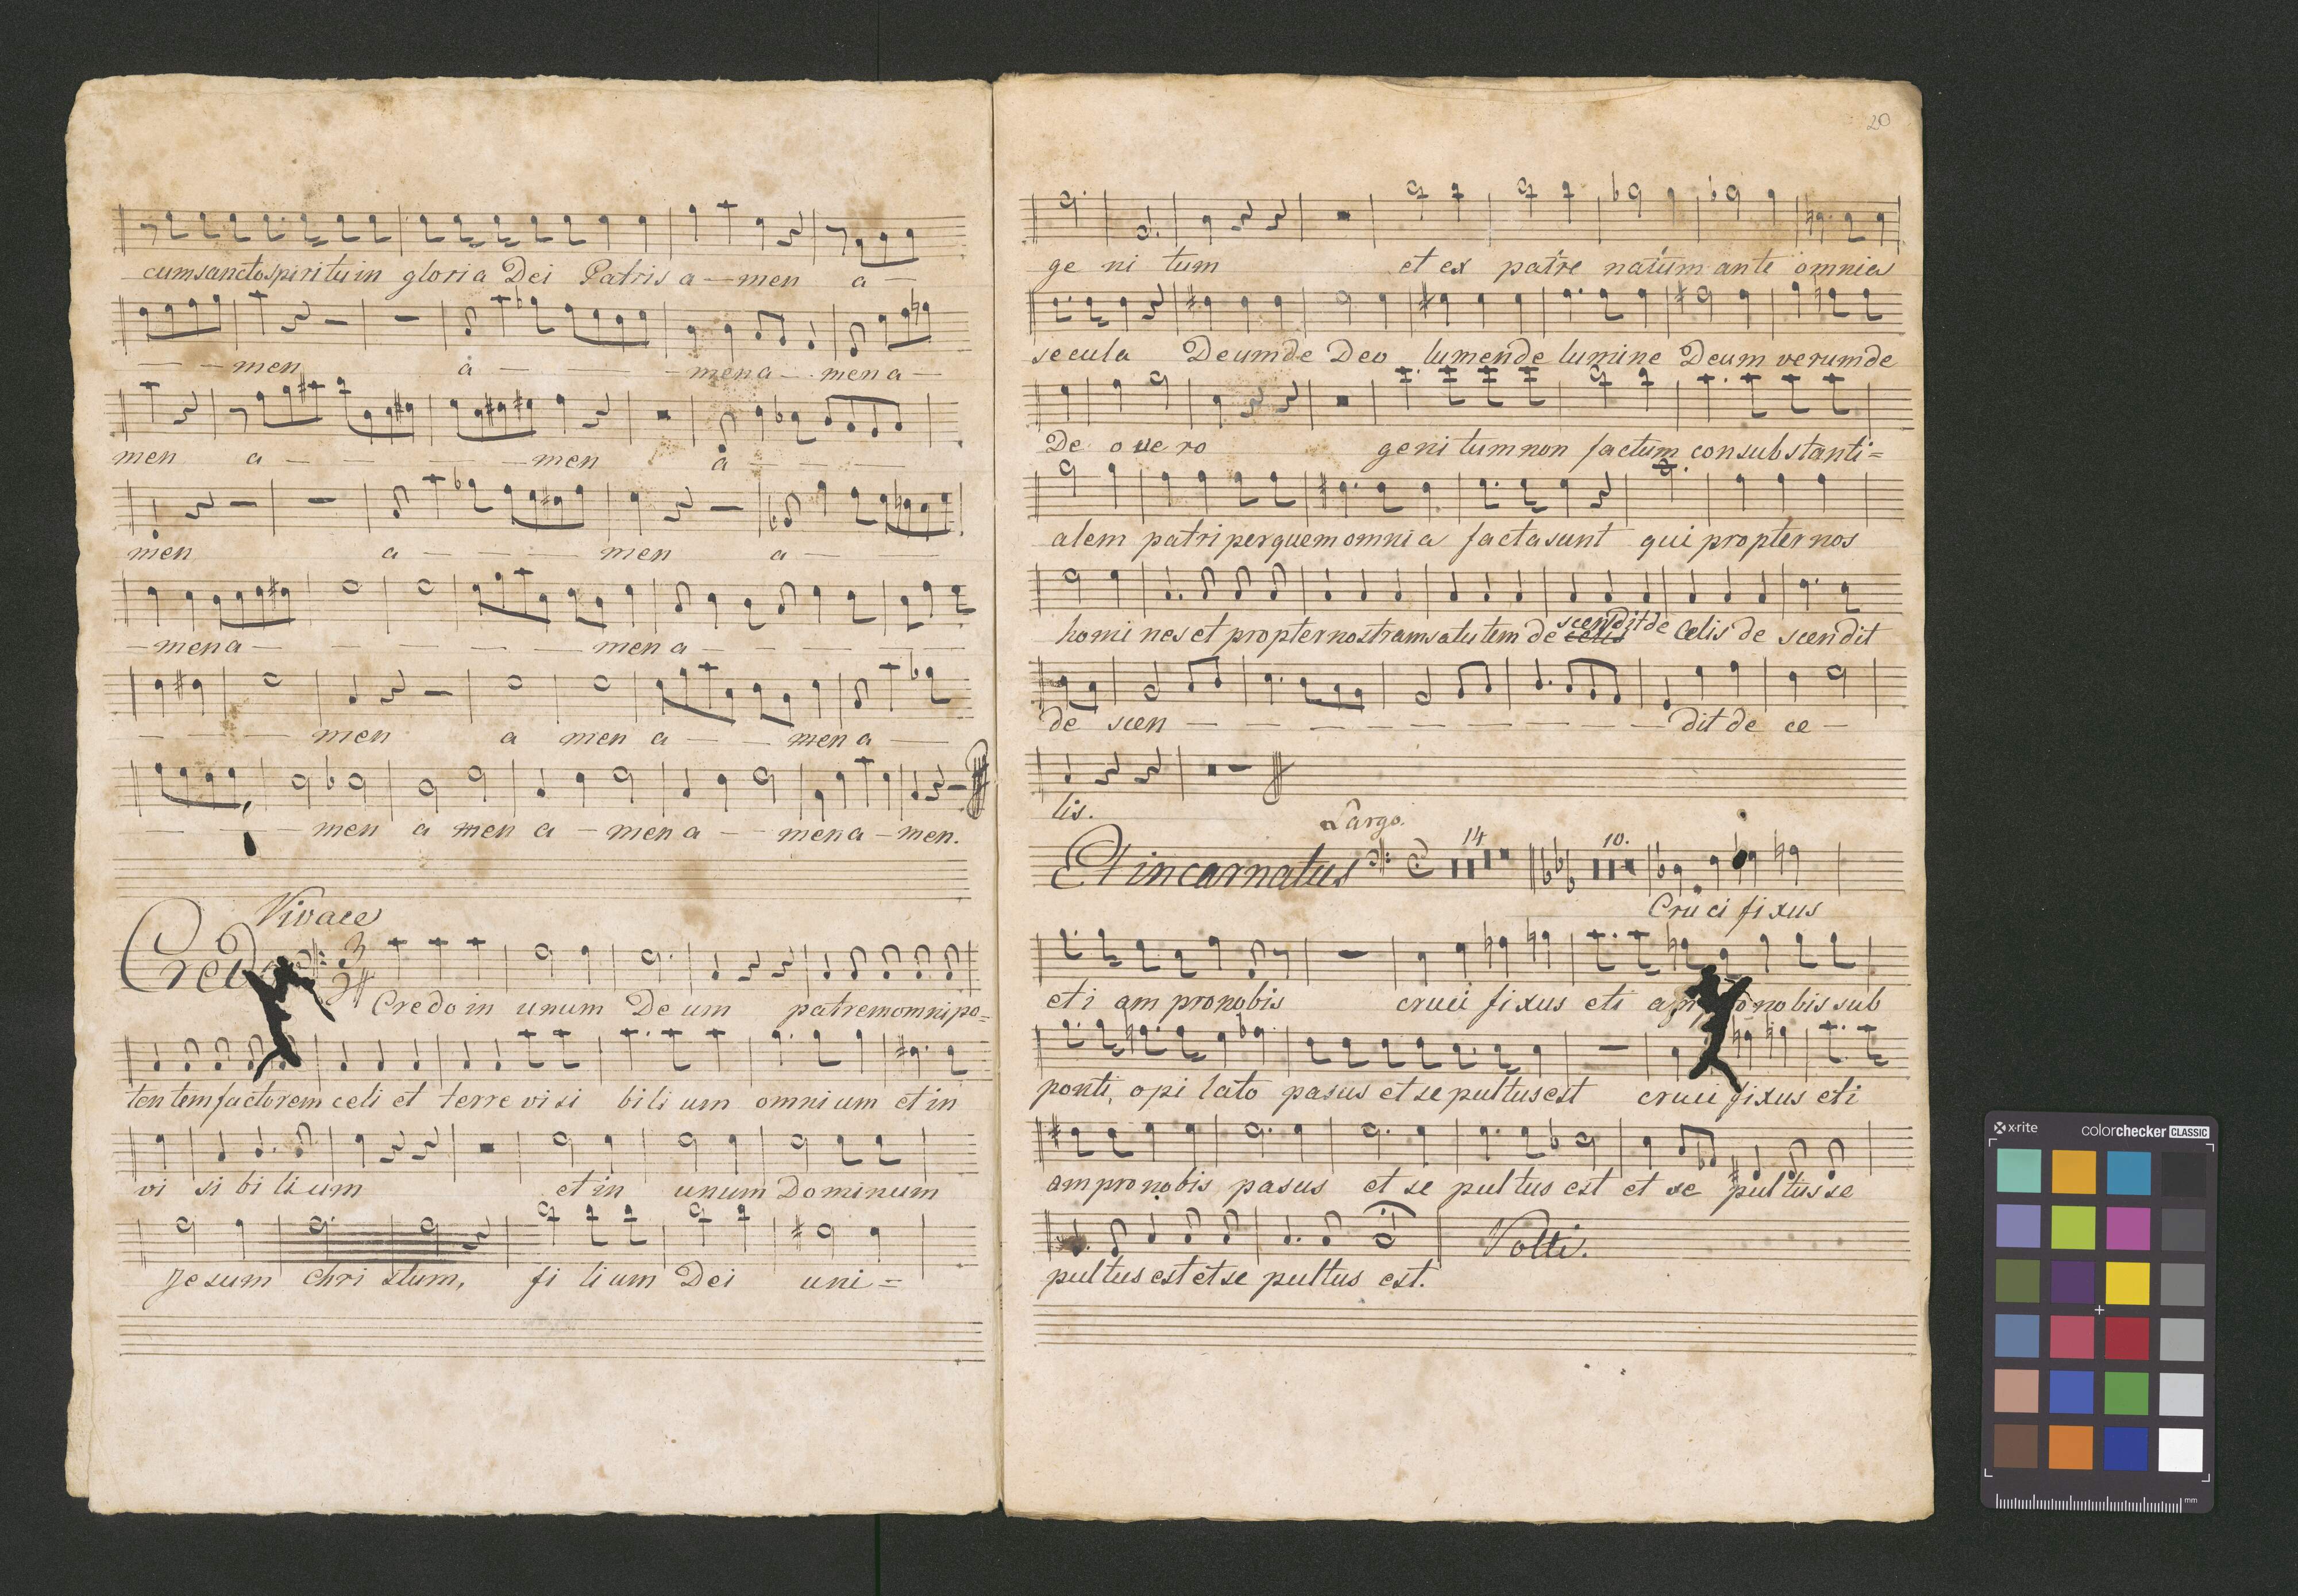 cum sancto spiritu in gloria Dei Patris a - men a -
- - men a - - - - men a - - men a -
men a - - - - men a - - - -
men a - - - - men a - - - -
- men a - - - - - - men a - - - -
- - - men a men a - - men a -
- - - - men a men a - men a - - men a - men.
Vivace
Credo
Credo in unum De um patrem omni po=
ten tem factorem celi et terre vi si bi li um omni um et in
vi si bi li um et in unum Dominum
Je sum Chri stum, fi li um Dei uni =
20
ge ni tum et ex patre natum ante omnia
secula Deum de Deo lumen de lumine Deum verum de
De o ve ro geni tum non factum con substanti=
alem patri per quem omnia facta sunt qui propter nos
homi nes et propter nostram salutem de celis scendit de Celis de scendit
de scen - - - - - - - dit de ce -
lis.
Largo.
Et incarnatus 14 10.
Cru ci fi xus
et i am pro nobis cruci fi xus eti am pro no bis sub
ponti, o pi lato pasus et se pultus est cruci fixus eti
am pro nobis pasus et se pultus est et se pultus se
pultus est et se pultus est. Volti.
x-rite
colorchecker CLASSIC
mm